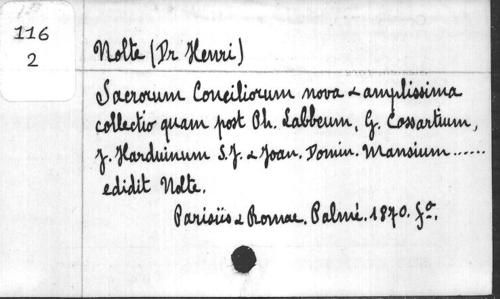 116
2
Nolte (Dr Henri)
Sacrorum Conciliorum nova & amplissima
collectio quam post Ph. Labbeum, G. Cossartium,
J. Harduinum S.J. & Joan. Domin. Mansium......
edidit Nolte.
Parisiis & Romae. Palmé. 1870. fo.